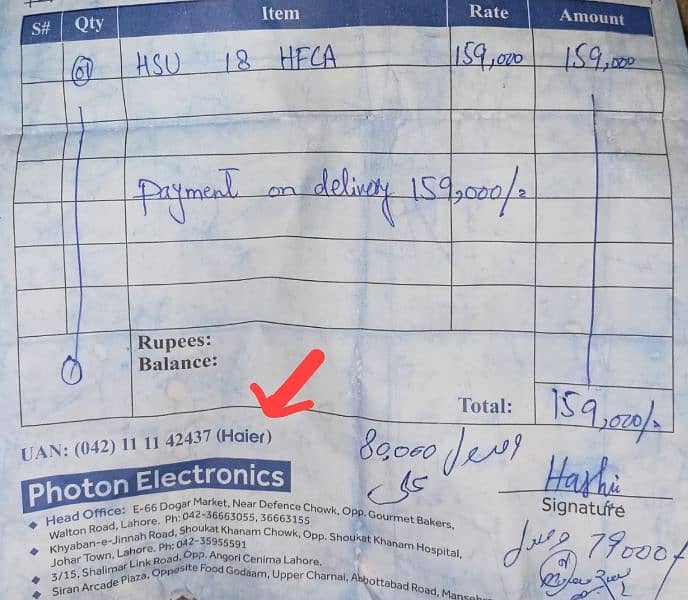 S# Qty Item Rate Amount
01 HSU 18 HFCA 159,000 159,000
Payment on delivery 159,000/=
Rupees:
Balance:
1
Total: 159,000/=
UAN: (042) 11 11 42437 (Haier)
80,000 وصول
Photon Electronics
Signature
Head Office: E-66 Dogar Market, Near Defence Chowk, Opp. Gourmet Bakers,
Walton Road, Lahore. Ph:042-36663055, 36663155
Khyaban-e-Jinnah Road, Shoukat Khanam Chowk, Opp. Shoukat Khanam Hospital,
Johar Town, Lahore. Ph: 042-35955591
3/15, Shalimar Link Road, Opp. Angori Cenima Lahore.
Siran Arcade Plaza, Opposite Food Godaam, Upper Charnai, Abbottabad Road, Manseh
79000/ وصول